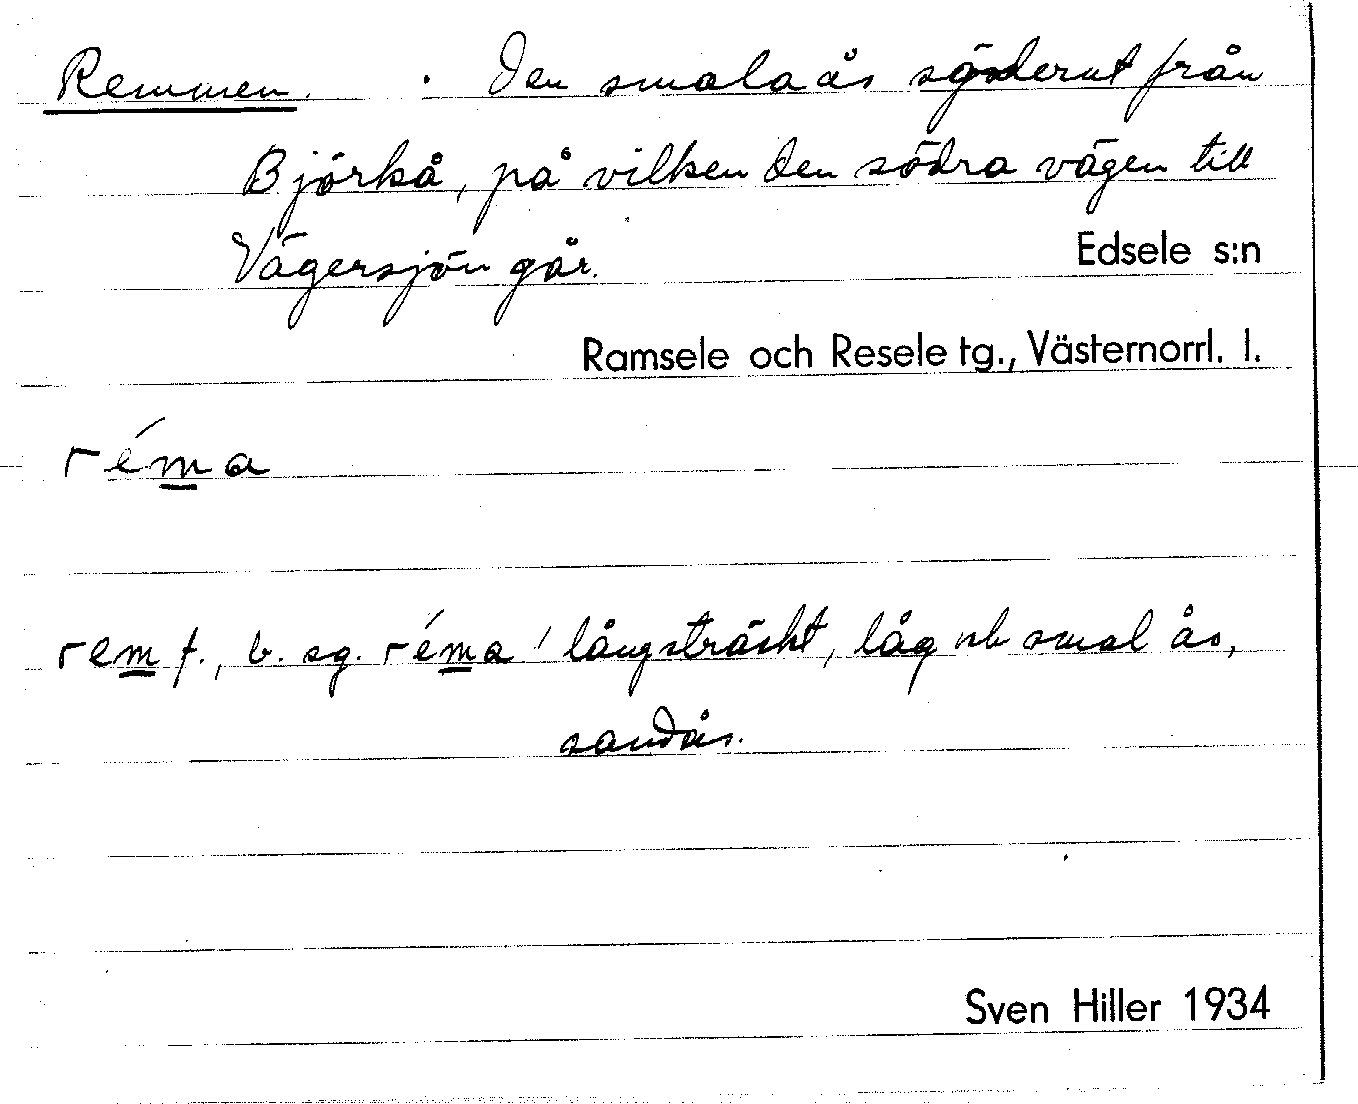 Remmen. . Den smala ås söderut från
Björkå, på vilken den södra vägen till
Vägersjön går. Edsele s:n
Ramsele och Resele tg., Västernorrl. l.
réma
rem f., b. sg. réma ' långsträckt, låg och smal ås,
sandås.
Sven Hiller 1934